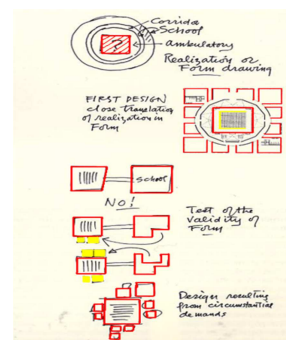 Corridor
School
?
ambulatory
Realization or
Form drawing
FIRST DESIGN
close translation
of realization in
Form
SCHOOL
NO!
Test of the
validity of
Form
Design resulting
from circumstantial
demands